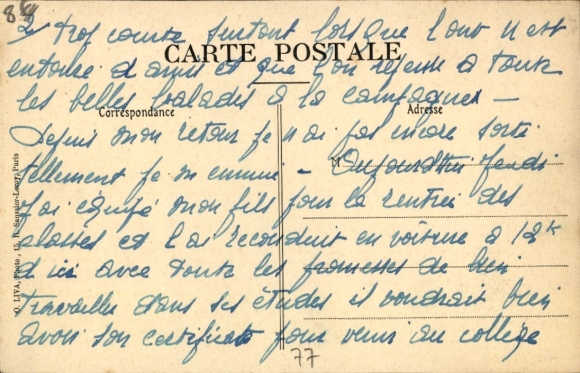 86
2 trop courte surtout lorsque l'on n'est
CARTE POSTALE
entouré d'amis et que l'on repense à toute
les belles balades à la campagne –
Correspondance
Adresse
Depuis mon retour je n'ai pas encore sorti
tellement je m'ennui – Aujourd'hui Jeudi
M
J'ai équipé mon fils pour la rentrée des
classes et l'ai reconduit en voiture à 12k
d'ici avec toute les promesses de bien
travailler dans ses études il voudrait bien
avoir son certificat pour venir au collège
77
O. LIVA, Photo., 15, R. Saussier-Leroy, Paris